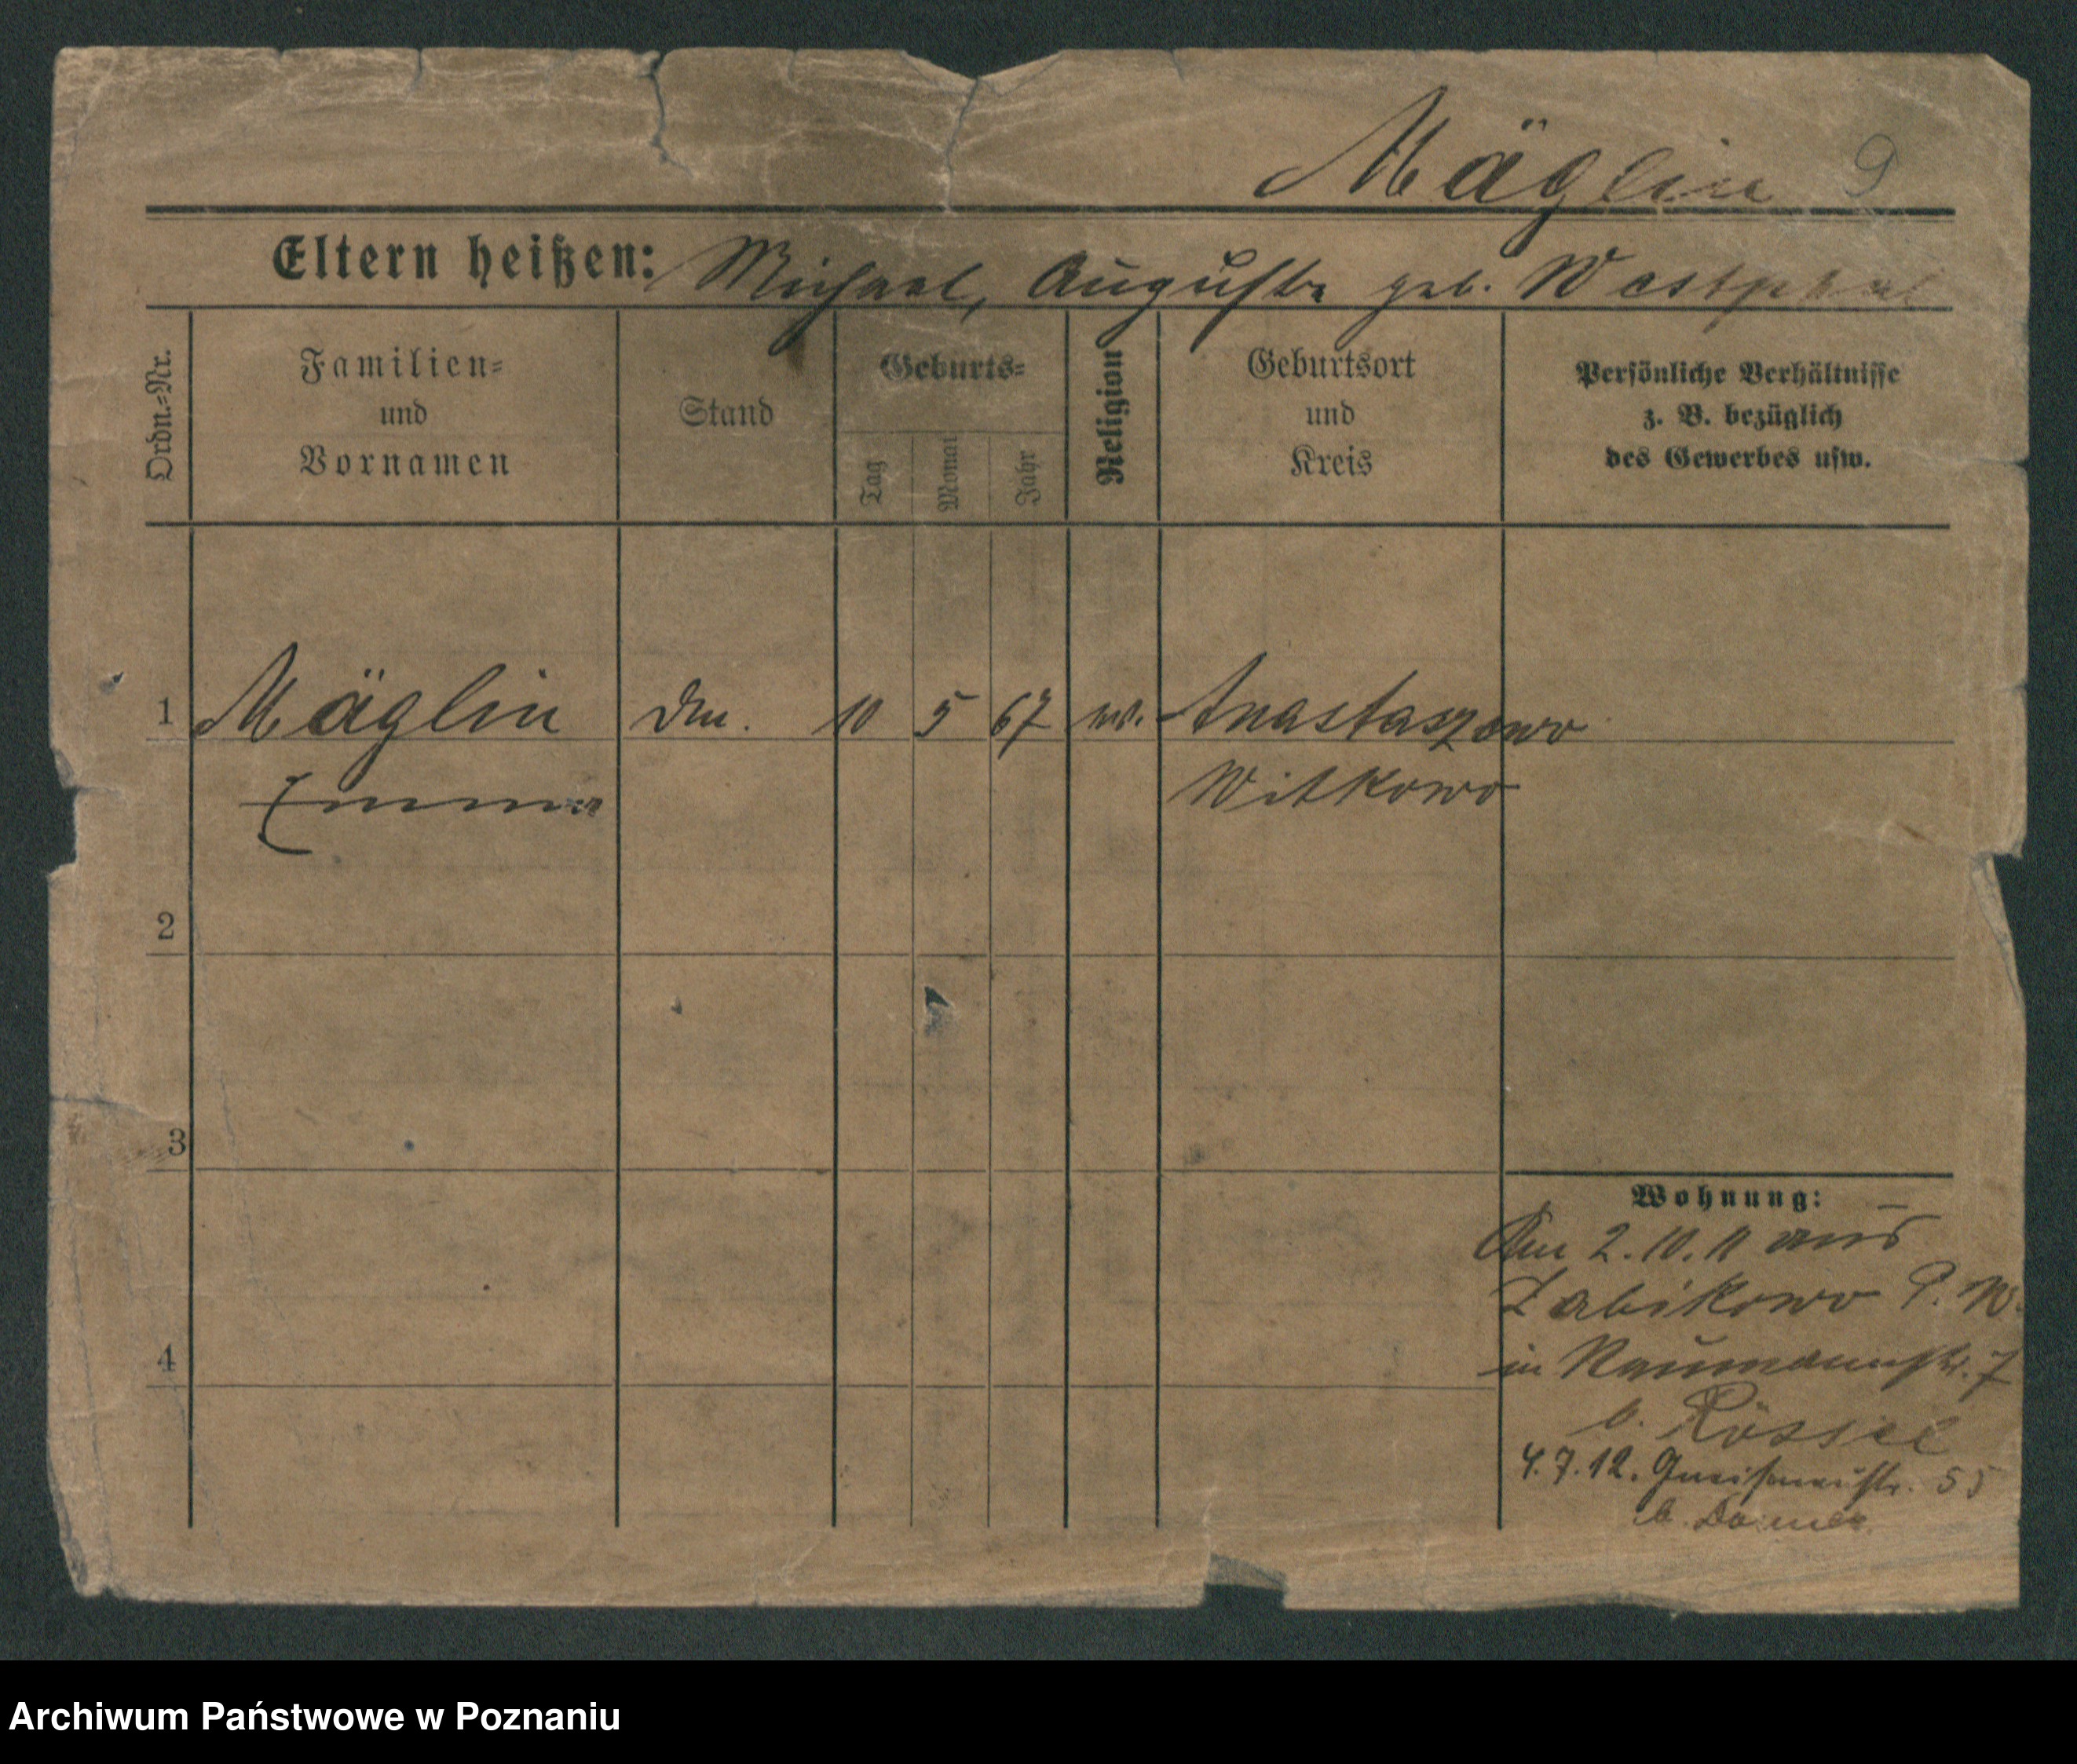 Mäglin 9
Eltern heißen: Michael, Auguste geb. Westphal
Ordn.=Nr.
Familien=
und
Vornamen
Stand
Geburts=
Tag
Monat
Jahr
Religion
Geburtsort
und
Kreis
Persönliche Verhältnisse
z. B. bezüglich
des Gewerbes usw.
1 Mäglin 10 5 67 Anastazewo
Emma Witkowo
2
3
4
Wohnung:
Am 2.10.11 aus
Zabikowo P. W.
in Naumannstr. 7
b. Rössel
4.7.12. Gneisenaustr. 55
b.
Archiwum Państwowe w Poznaniu